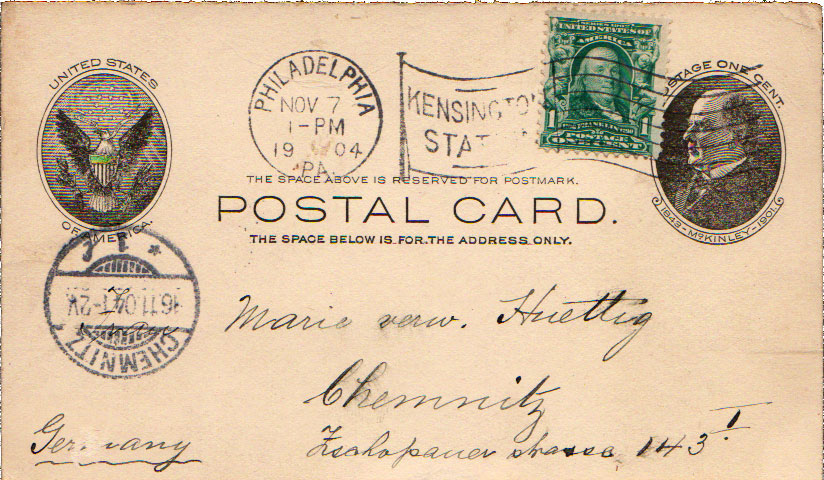 UNITED STATES
OF AMERICA.
PHILADELPHIA
NOV 7
1-PM
19 04
PA.
KENSINGTO
STAT
UNITED STATES OF
AMERICA
1
POSTAGE ONE CENT.
1843-McKINLEY-1901
THE SPACE ABOVE IS RESERVED FOR POSTMARK.
POSTAL CARD.
THE SPACE BELOW IS FOR THE ADDRESS ONLY.
16.11.04.1-2V.
CHEMNITZ
Marie verw. Huettig
Chemnitz
Zschopauer strasse 143 I
Germany